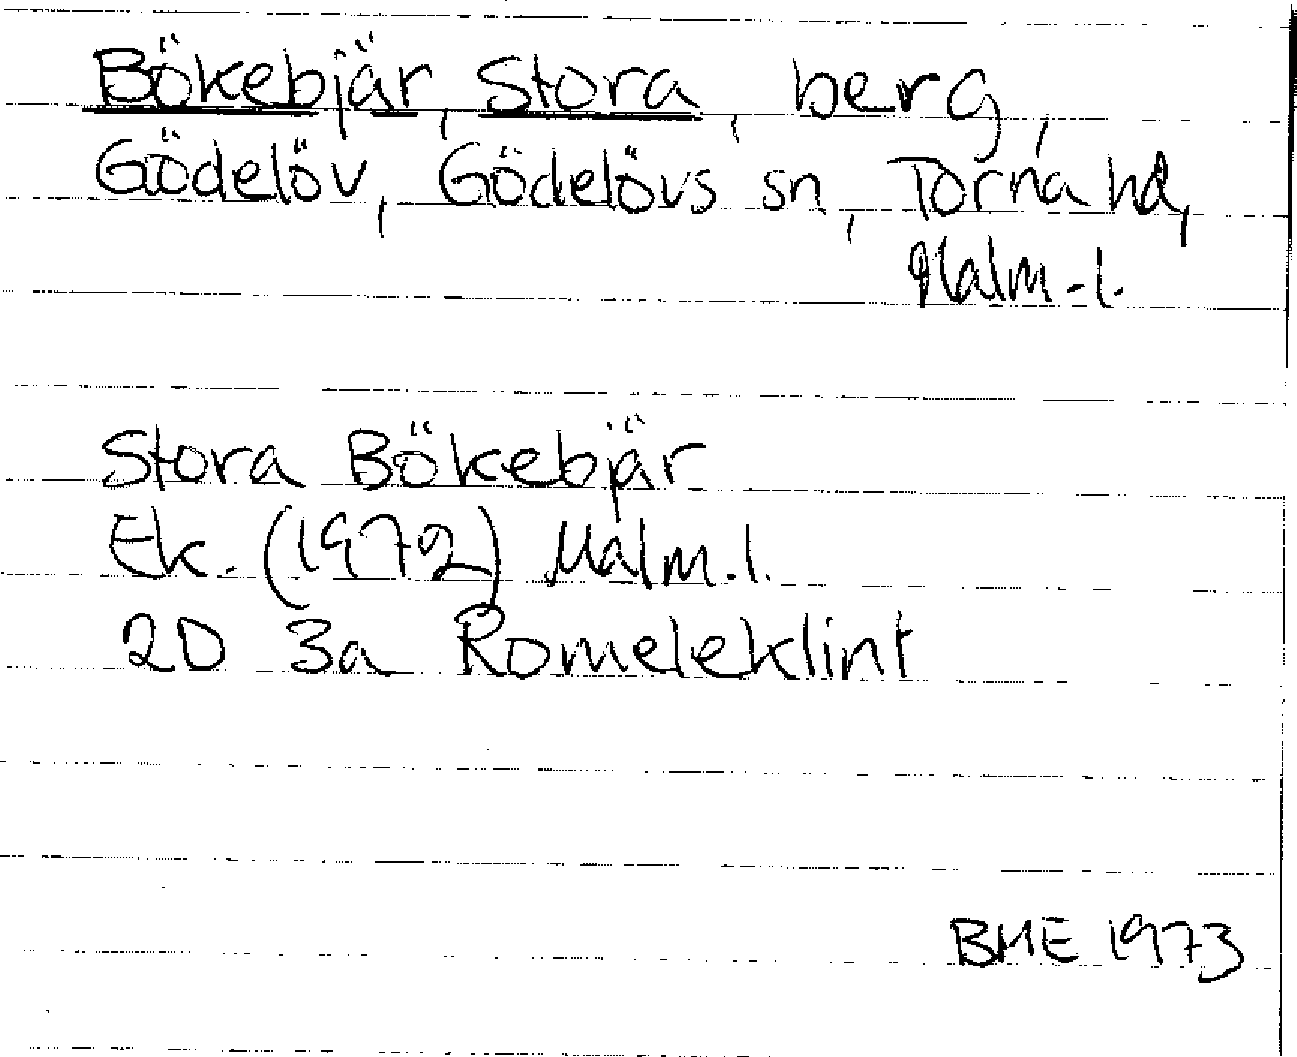 Bökebjär, Stora, berg,
Gödelöv, Gödelövs sn, Torna hd,
Malm-l.
Stora Bökebjär
Ek. (1972) Malm.l.
2D 3a Romeleklint
BME 1973